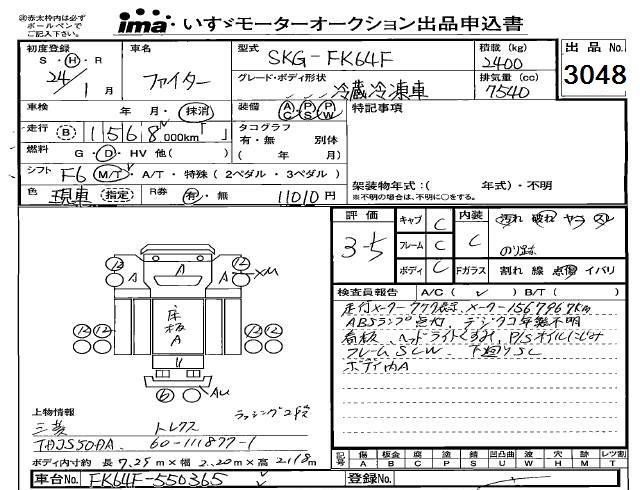 ◎赤太枠内は必ず
ボールペンで
ご記入下さい。
ima いすゞモーターオークション出品申込書
初度登録
S・H・R
24/1 月
車名
ファイター
型式
SKG-FK64F
積載 (kg)
2400
出品 No.
3048
グレード・ボディ形状
冷蔵冷凍車
排気量 (cc)
7540
車検 年 月・抹消
装備 AC PS PW
特記事項
走行 B 1 5 6 8 000km「 」
タコグラフ
有・無 別体
( 年 月)
燃料 G・D・HV 他( )
シフト F6 M/T・A/T・特殊(2ペダル・3ペダル)
架装物年式:( 年式)・不明
※不明の場合は、不明に○をする。
色 現車 指定 R券 有・無 11010円
評価
3-5
キャブ C
フレーム C
ボディ C
内装
C
Fガラス
汚れ 破れ ヤラ スレ
のり跡
割れ 線 点傷 イバリ
検査員報告 A/C( ✓ ) B/T( )
走行メーター 表示、メーター1567967km
ABSランプ点灯、デジタコ年数不明
看板、ヘッドライトくすみ、P/Sオイルにじみ
フレームSCW、下廻りSC
ボディ内A
12 12 A A A XU
床板A
12 12 12 12
U
6 AU
上物情報
ラッシング2段
三菱 トレクス
TDJS50DA 60-111877-1
ボディ内寸約 長 7.25m×幅 2.20m×高 2.18m
記号 傷A 板金B 腐C 塗P 錆S 凹凸曲U 波W 穴H 跡M レツ割T
車台No. FK64F-550365
登録No.